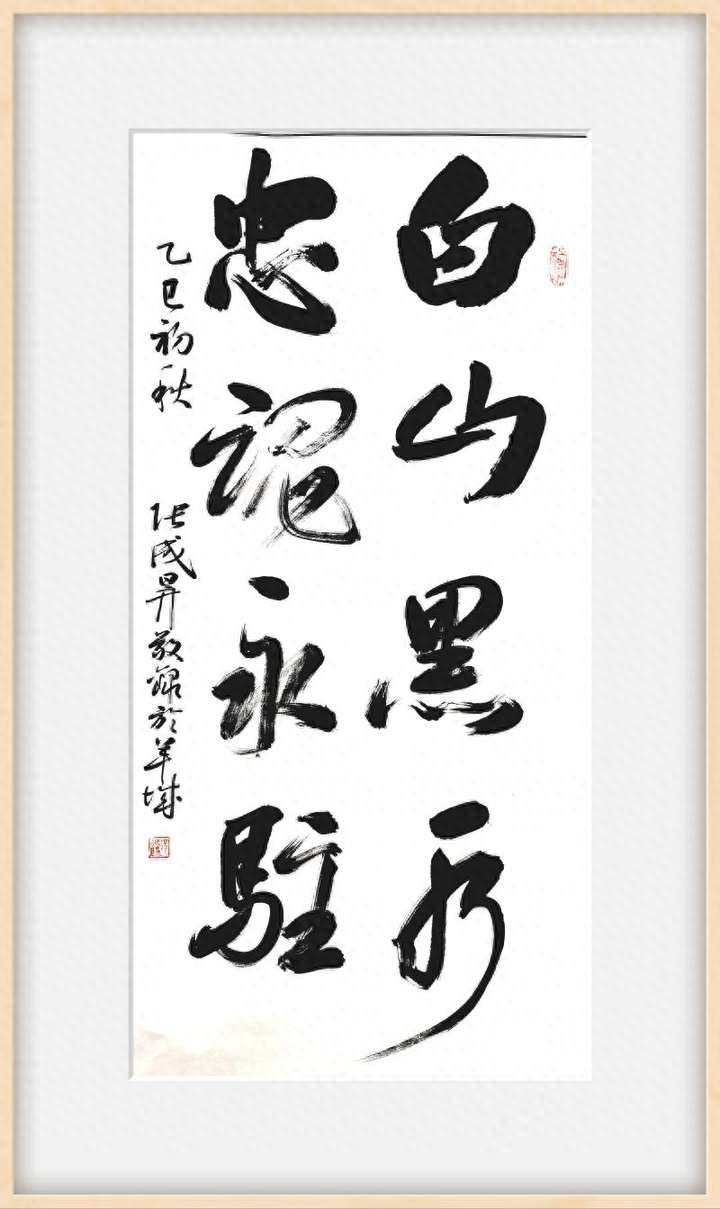 白山黑水
忠魂永駐
乙巳初秋
张成昇敬録於羊城